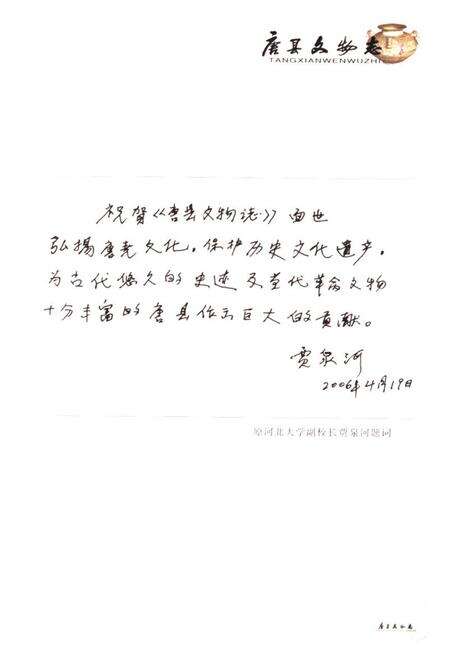 唐县文物志
TANGXIANWENWUZHI
祝贺《唐县文物志》面世
弘揚唐尧文化，保护历史文化遗产，
为古代悠久的史迹及当代革命文物
十分丰富的唐县作出巨大的贡献。
贾泉河
2006年4月19日
原河北大学副校长贾泉河题词
唐县文物志